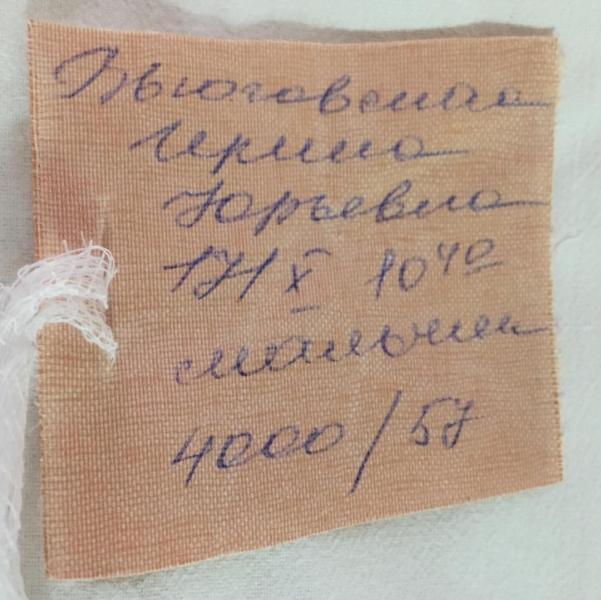 Вьюговская
Ирина
Юрьевна
17/X 10⁴⁰
мальчик
4000/57